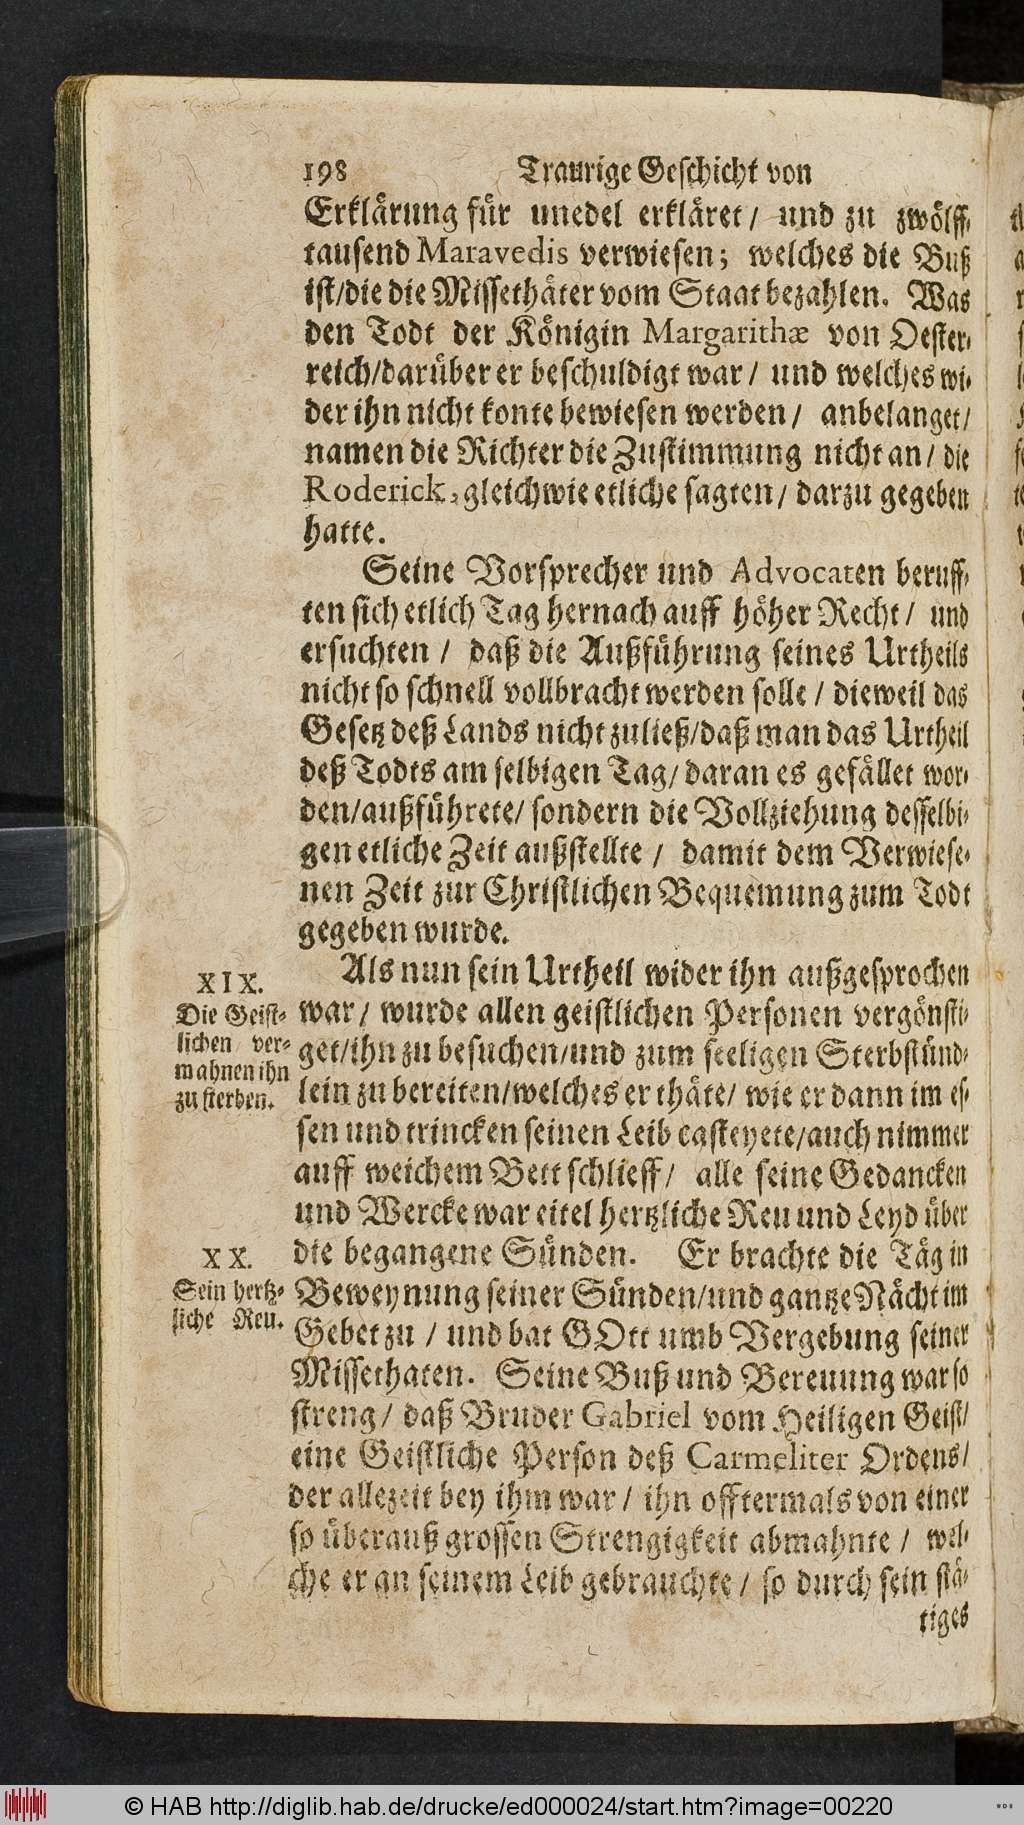 198 Traurige Geschicht von
Erklärung für unedel erkläret / und zu zwölff-
tausend Maravedis verwiesen; welches die Buß
ist/die die Missethäter vom Staat bezahlen. Was
den Todt der Königin Margarithæ von Oester-
reich/darüber er beschuldigt war / und welches wi-
der ihn nicht konte bewiesen werden / anbelanget/
namen die Richter die Zustimmung nicht an / die
Roderick, gleichwie etliche sagten / darzu gegeben
hatte.
Seine Vorsprecher und Advocaten beruff-
ten sich etlich Tag hernach auff höher Recht / und
ersuchten / daß die Außführung seines Urtheils
nicht so schnell vollbracht werden solle / dieweil das
Gesetz deß Lands nicht zuließ/daß man das Urtheil
deß Todts am selbigen Tag/ daran es gefället wor-
den/außführete/ sondern die Vollziehung desselbi-
gen etliche Zeit außstellte / damit dem Verwiese-
nen Zeit zur Christlichen Bequemung zum Todt
gegeben wurde.
XIX.
Die Geist-
lichen ver-
mahnen ihn
zu sterben.
Als nun sein Urtheil wider ihn außgesprochen
war / wurde allen geistlichen Personen vergönsti-
get/ihn zu besuchen/und zum seeligen Sterbstünd-
lein zu bereiten/welches er thäte/ wie er dann im es-
sen und trincken seinen Leib casteyete/auch nimmer
auff weichem Bett schlieff/ alle seine Gedancken
und Wercke war eitel hertzliche Reu und Leyd über
die begangene Sünden. Er brachte die Täg in
XX.
Sein hertz-
liche Reu.
Beweynung seiner Sünden/und gantze Nächt im
Gebet zu / und bat GOtt umb Vergebung seiner
Missethaten. Seine Buß und Bereuung war so
streng / daß Bruder Gabriel vom Heiligen Geist/
eine Geistliche Person deß Carmeliter Ordens/
der allezeit bey ihm war / ihn offtermals von einer
so überauß grossen Strengigkeit abmahnte / wel-
che er an seinem Leib gebrauchte / so durch sein stä-
tiges
© HAB http://diglib.hab.de/drucke/ed000024/start.htm?image=00220